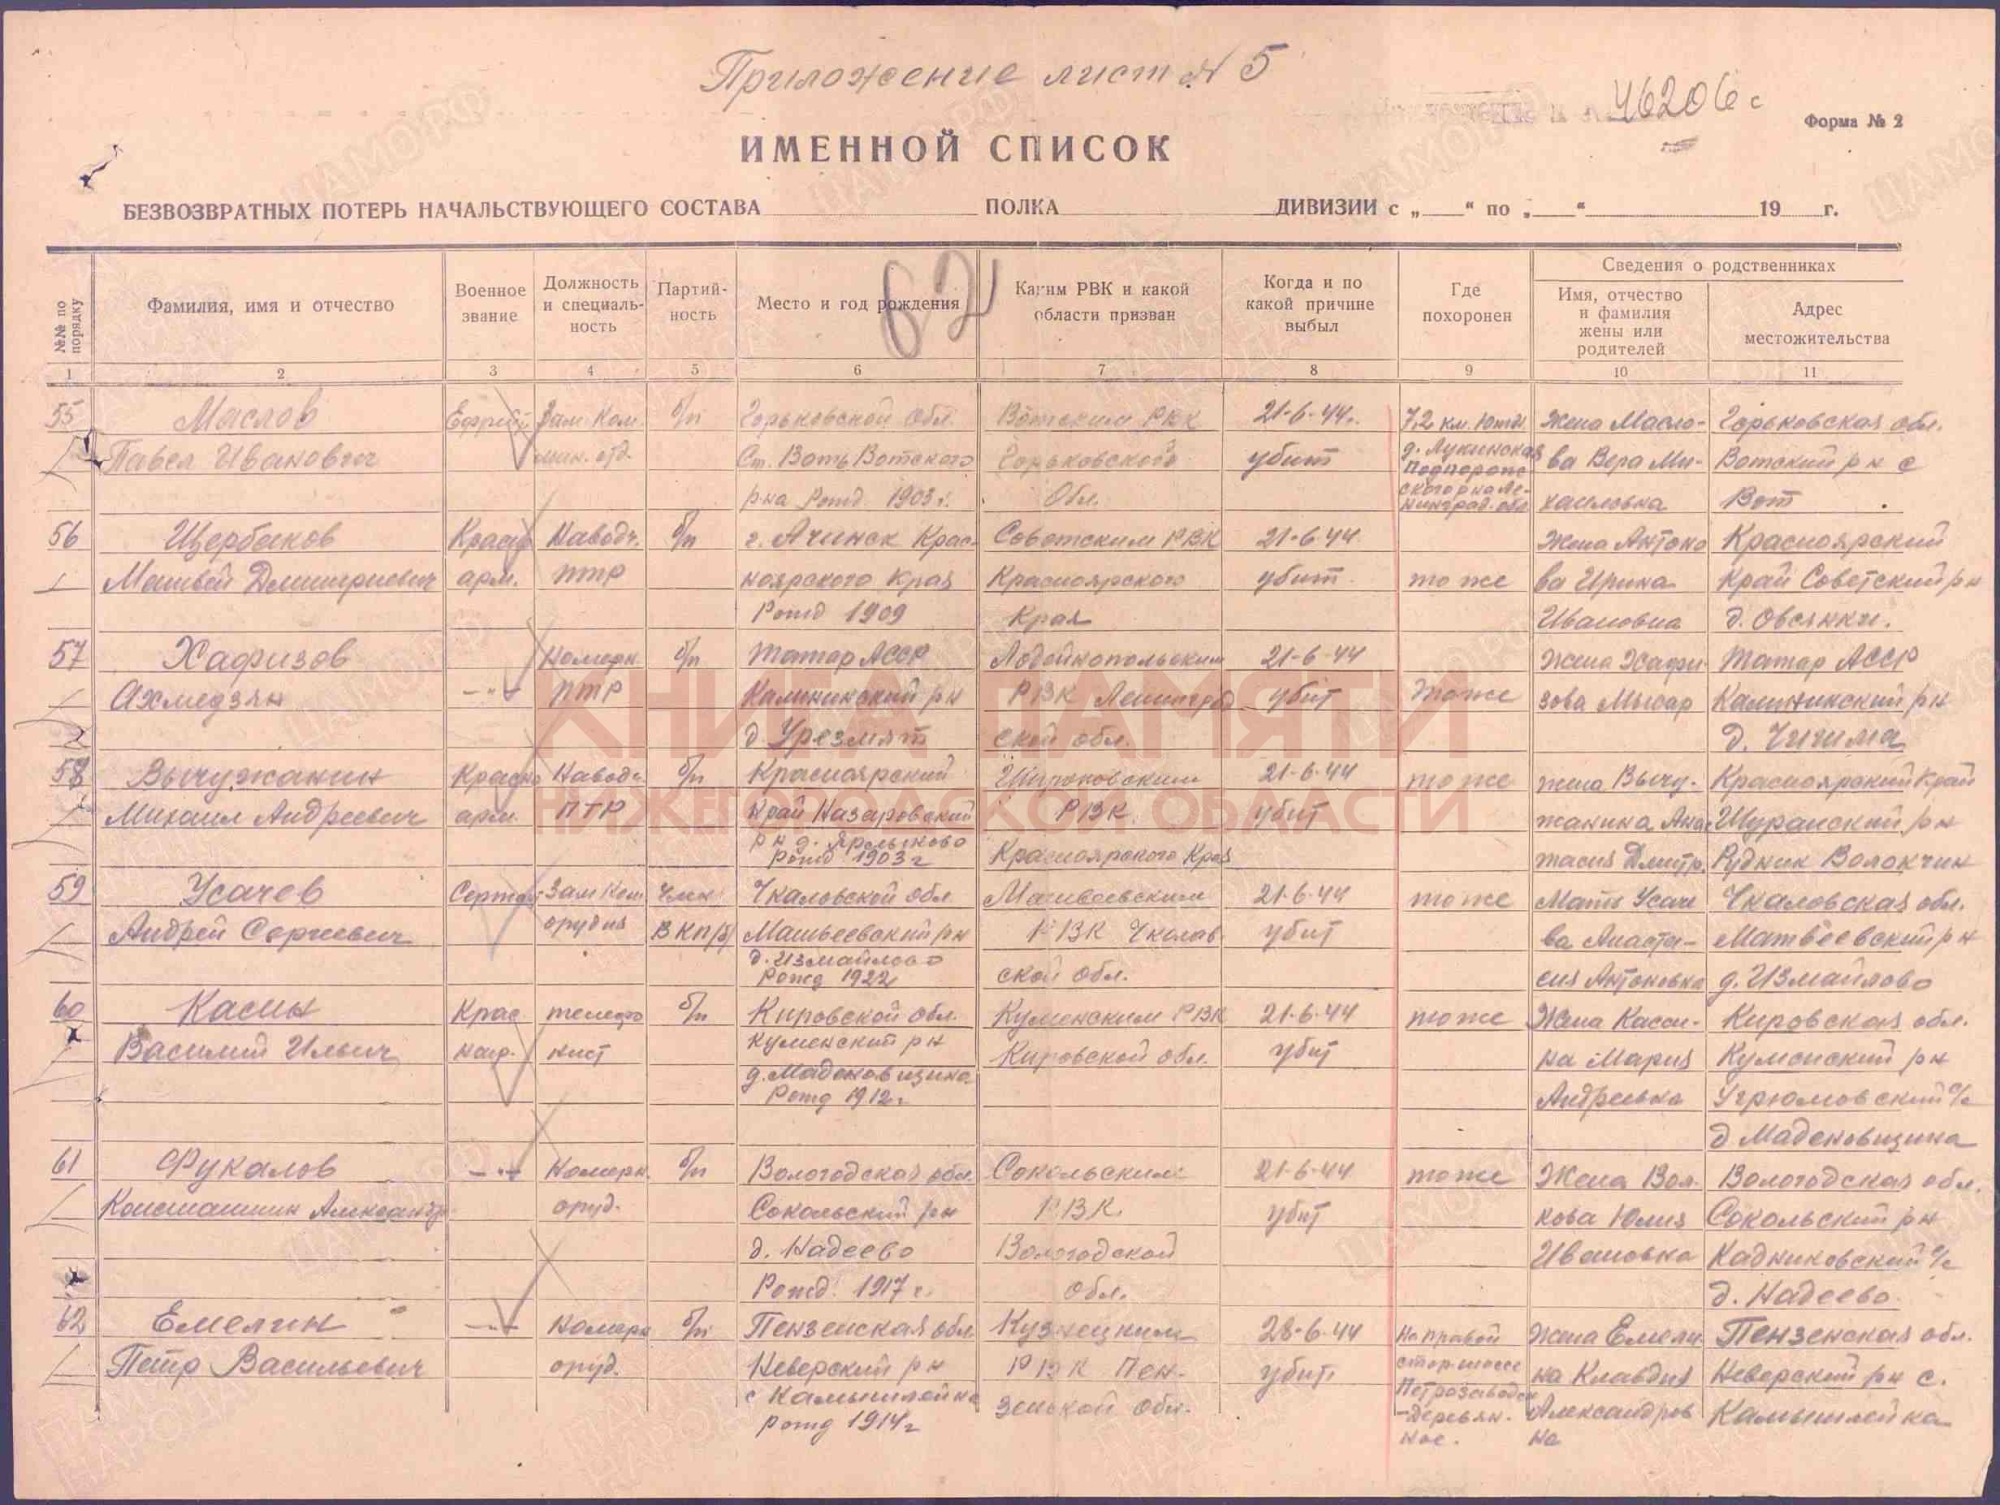 Приложение лист № 5
46206с
Форма № 2
ИМЕННОЙ СПИСОК
БЕЗВОЗВРАТНЫХ ПОТЕРЬ НАЧАЛЬСТВУЮЩЕГО СОСТАВА ПОЛКА ДИВИЗИИ с „ “ по „ “ 19 г.
62
№№ по порядку
Фамилия, имя и отчество
Военное звание
Должность и специаль-ность
Партий-ность
Место и год рождения
Каким РВК и какой области призван
Когда и по какой причине выбыл
Где похоронен
Сведения о родственниках
Имя, отчество и фамилия жены или родителей
Адрес местожительства
1 2 3 4 5 6 7 8 9 10 11
55 Маслов Ефрейт Зам Ком. б/п Горьковской Обл. Вотским РВК 21-6-44г. 7,2 км. южн. Жена Масло- Горьковская обл.
Павел Иванович мин. отд. Ст. Воть Вотского Горьковского убит д. Лукинская ва Вера Ми- Вотский р н с
р-на Рожд 1903 г. Обл. Подпорож-ского р на Ле-нинград. обл хаиловна Вот
56 Щербаков Красно Наводч. б/п г. Ачинск Крас- Советским РВК 21-6-44 Жена Антоно Красноярский
Матвей Дмитриевич арм. ПТР ноярского Края Красноярского убит то же ва Ирина край Советский р н
Рожд 1909 Края Ивановна д. Овсянки.
57 Хафизов Номерн б/п Татар АССР Лодейнопольским 21-6-44 Жена Хафи- Татар АССР
Ахмедзян -"- ПТР Калининский р н РВК Ленинград убит то же зова Калининский р н
д. Урезмят ской обл. д. Чишма
58 Вычужанин Красно Наводч б/п Красноярский 21-6-44 то же жена Вычу- Красноярский Край
Михаил Андреевич арм. ПТР край Назаровский РВК. убит жанина Анас
р н д. Ярлыково Рожд 1903 г Красноярского Края тасия Дмитр. Рудник
59 Усачев Сержант Зам Ком Член Чкаловской обл Матвеевским 21-6-44 то же Мать Усаче Чкаловская обл.
Андрей Сергеевич орудия ВКП/б/ Матвеевский р н РВК Чкалов убит ва Анаста- Матвеевский р н
д. Измайлово Рожд 1922 ской обл. сия Антоновна д. Измайлово
60 Касин Крас телефо б/п Кировской обл. Куменским РВК 21-6-44 то же Жена Касси- Кировская обл.
Василий Ильич нист Куменский р н Кировской обл. убит на Мария Куменский р н
д. Маденовщина Рожд 1912 г Андреевна Угрюмовский с/с
д Маденовщина
61 Фукалов -"- Номерн. б/п Вологодская обл. Сокольским 21-6-44 то же Жена Вол- Вологодская обл.
Константин Александр оруд. Сокольский р н РВК. убит кова Юлия Сокольский р н
д. Надеево Вологодской Ивановна Кадниковский с/с
Рожд. 1917 г. обл. д. Надеево
62 Емелин -"- Номерн б/п Пензенская обл Кузнецким 28-6-44 На правой Жена Емели Пензенская обл.
Петр Васильевич оруд. Неверский р н РВК Пен- убит. стор. шоссе на Клавдия Неверский р н с.
с Камышлейка зенской обл. Петрозаводск Александров Камышлейка
рожд 1914 г -Деревян-ное. на
КНИГА ПАМЯТИ
НИЖЕГОРОДСКОЙ ОБЛАСТИ